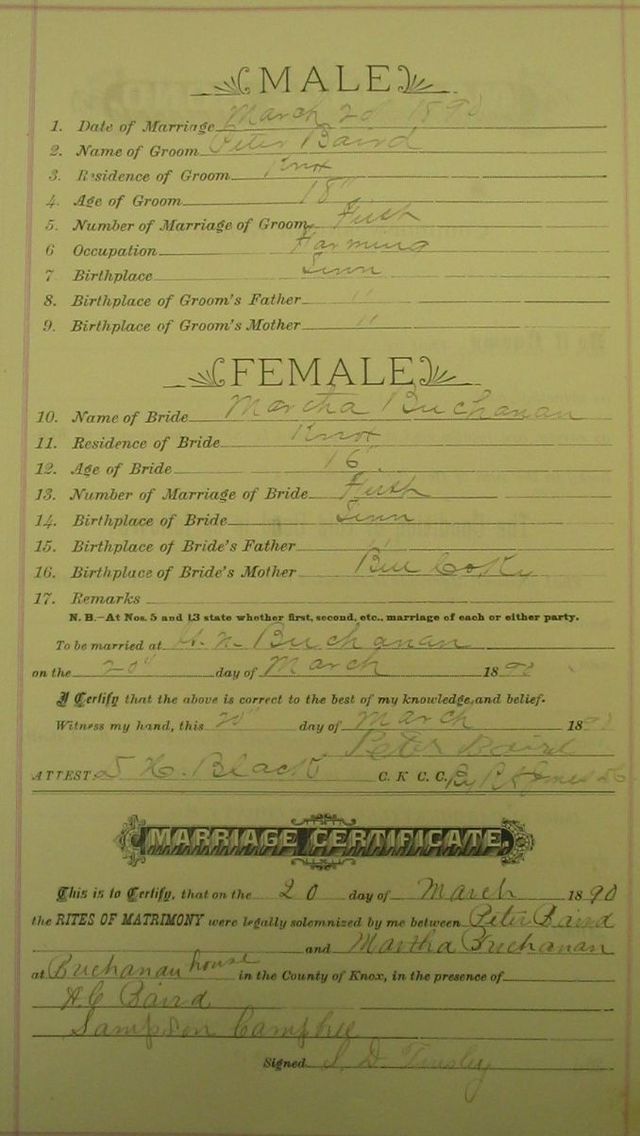 MALE
1. Date of Marriage March 20 1890
2. Name of Groom Peter Baird
3. Residence of Groom Knox
4. Age of Groom 18"
5. Number of Marriage of Groom First
6 Occupation Farming
7 Birthplace Tenn
8. Birthplace of Groom's Father "
9. Birthplace of Groom's Mother "
FEMALE
10. Name of Bride Martha Buchanan
11. Residence of Bride Knox
12. Age of Bride 16"
13. Number of Marriage of Bride First
14. Birthplace of Bride Tenn
15. Birthplace of Bride's Father "
16. Birthplace of Bride's Mother
17. Remarks
N. B.—At Nos. 5 and 13 state whether first, second, etc., marriage of each or either party.
To be married at Buchanan
on the 20" day of March 1890
I Certify that the above is correct to the best of my knowledge and belief.
Witness my hand, this 20" day of March 1890
Peter Baird
ATTEST: Black C. K C. C. By
MARRIAGE CERTIFICATE.
This is to Certify, that on the 20 day of March 1890
the RITES OF MATRIMONY were legally solemnized by me between Peter Baird
and Martha Buchanan
at Buchanan house in the County of Knox, in the presence of
H. C. Baird
Sampson
Signed S. D. Tinsley